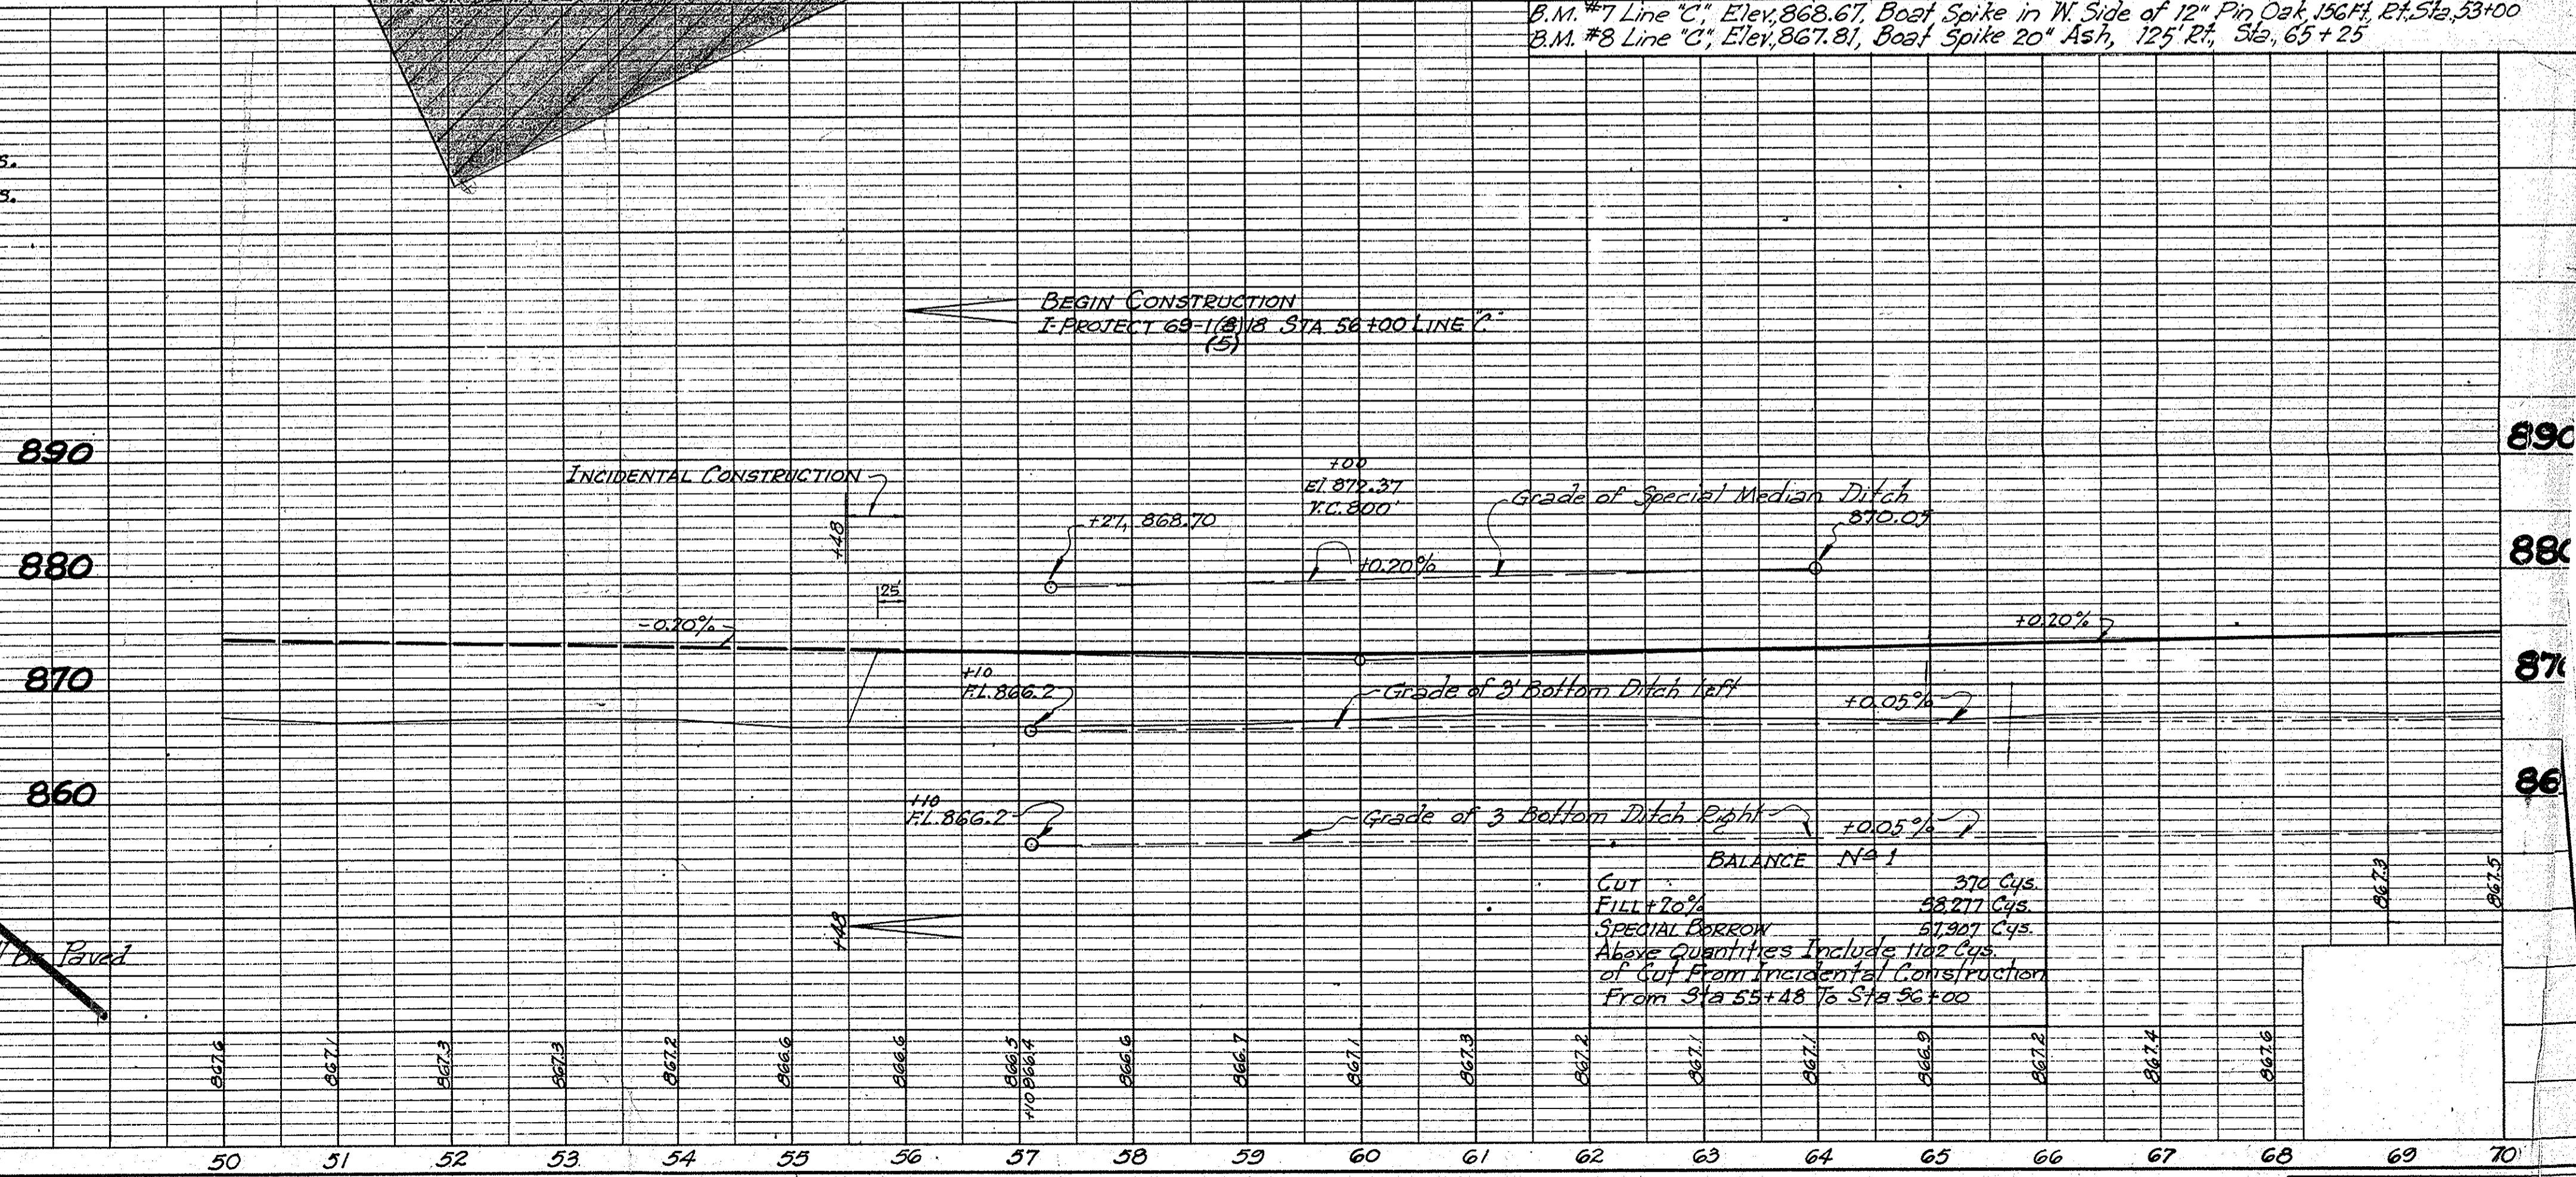 B.M. #7 Line "C", Elev. 868.67, Boat Spike in W. Side of 12" Pin Oak, 156 Ft. Rt. Sta. 53+00
B.M. #8 Line "C", Elev. 867.81, Boat Spike 20" Ash, 125' Rt., Sta. 65+25
s.
s.
BEGIN CONSTRUCTION
I-PROJECT 69-1(8)18 STA 56+00 LINE "C"
(5)
890
890
INCIDENTAL CONSTRUCTION
+00
El 872.37
V.C. 800'
Grade of Special Median Ditch
870.05
+27, 868.70
+48
880
880
+0.20%
25'
-0.20%
+0.20%
870
870
+10
F.L. 866.2
Grade of 3' Bottom Ditch Left
+0.05%
860
86
+10
F.L. 866.2
Grade of 3' Bottom Ditch Right
+0.05%
BALANCE No 1
CUT 370 Cys.
FILL +20% 58,277 Cys.
SPECIAL BORROW 57,907 Cys.
Above Quantities Include 1102 Cys.
of Cut From Incidental Construction
From Sta 55+48 To Sta 56+00
+48
Be Paved
867.6 867.1 867.3 867.3 867.2 866.6 866.6 866.5 +10 866.4 866.6 866.7 867.1 867.3 867.2 867.1 867.1 866.9 867.2 867.4 867.6 867.3 867.5
50 51 52 53 54 55 56 57 58 59 60 61 62 63 64 65 66 67 68 69 70